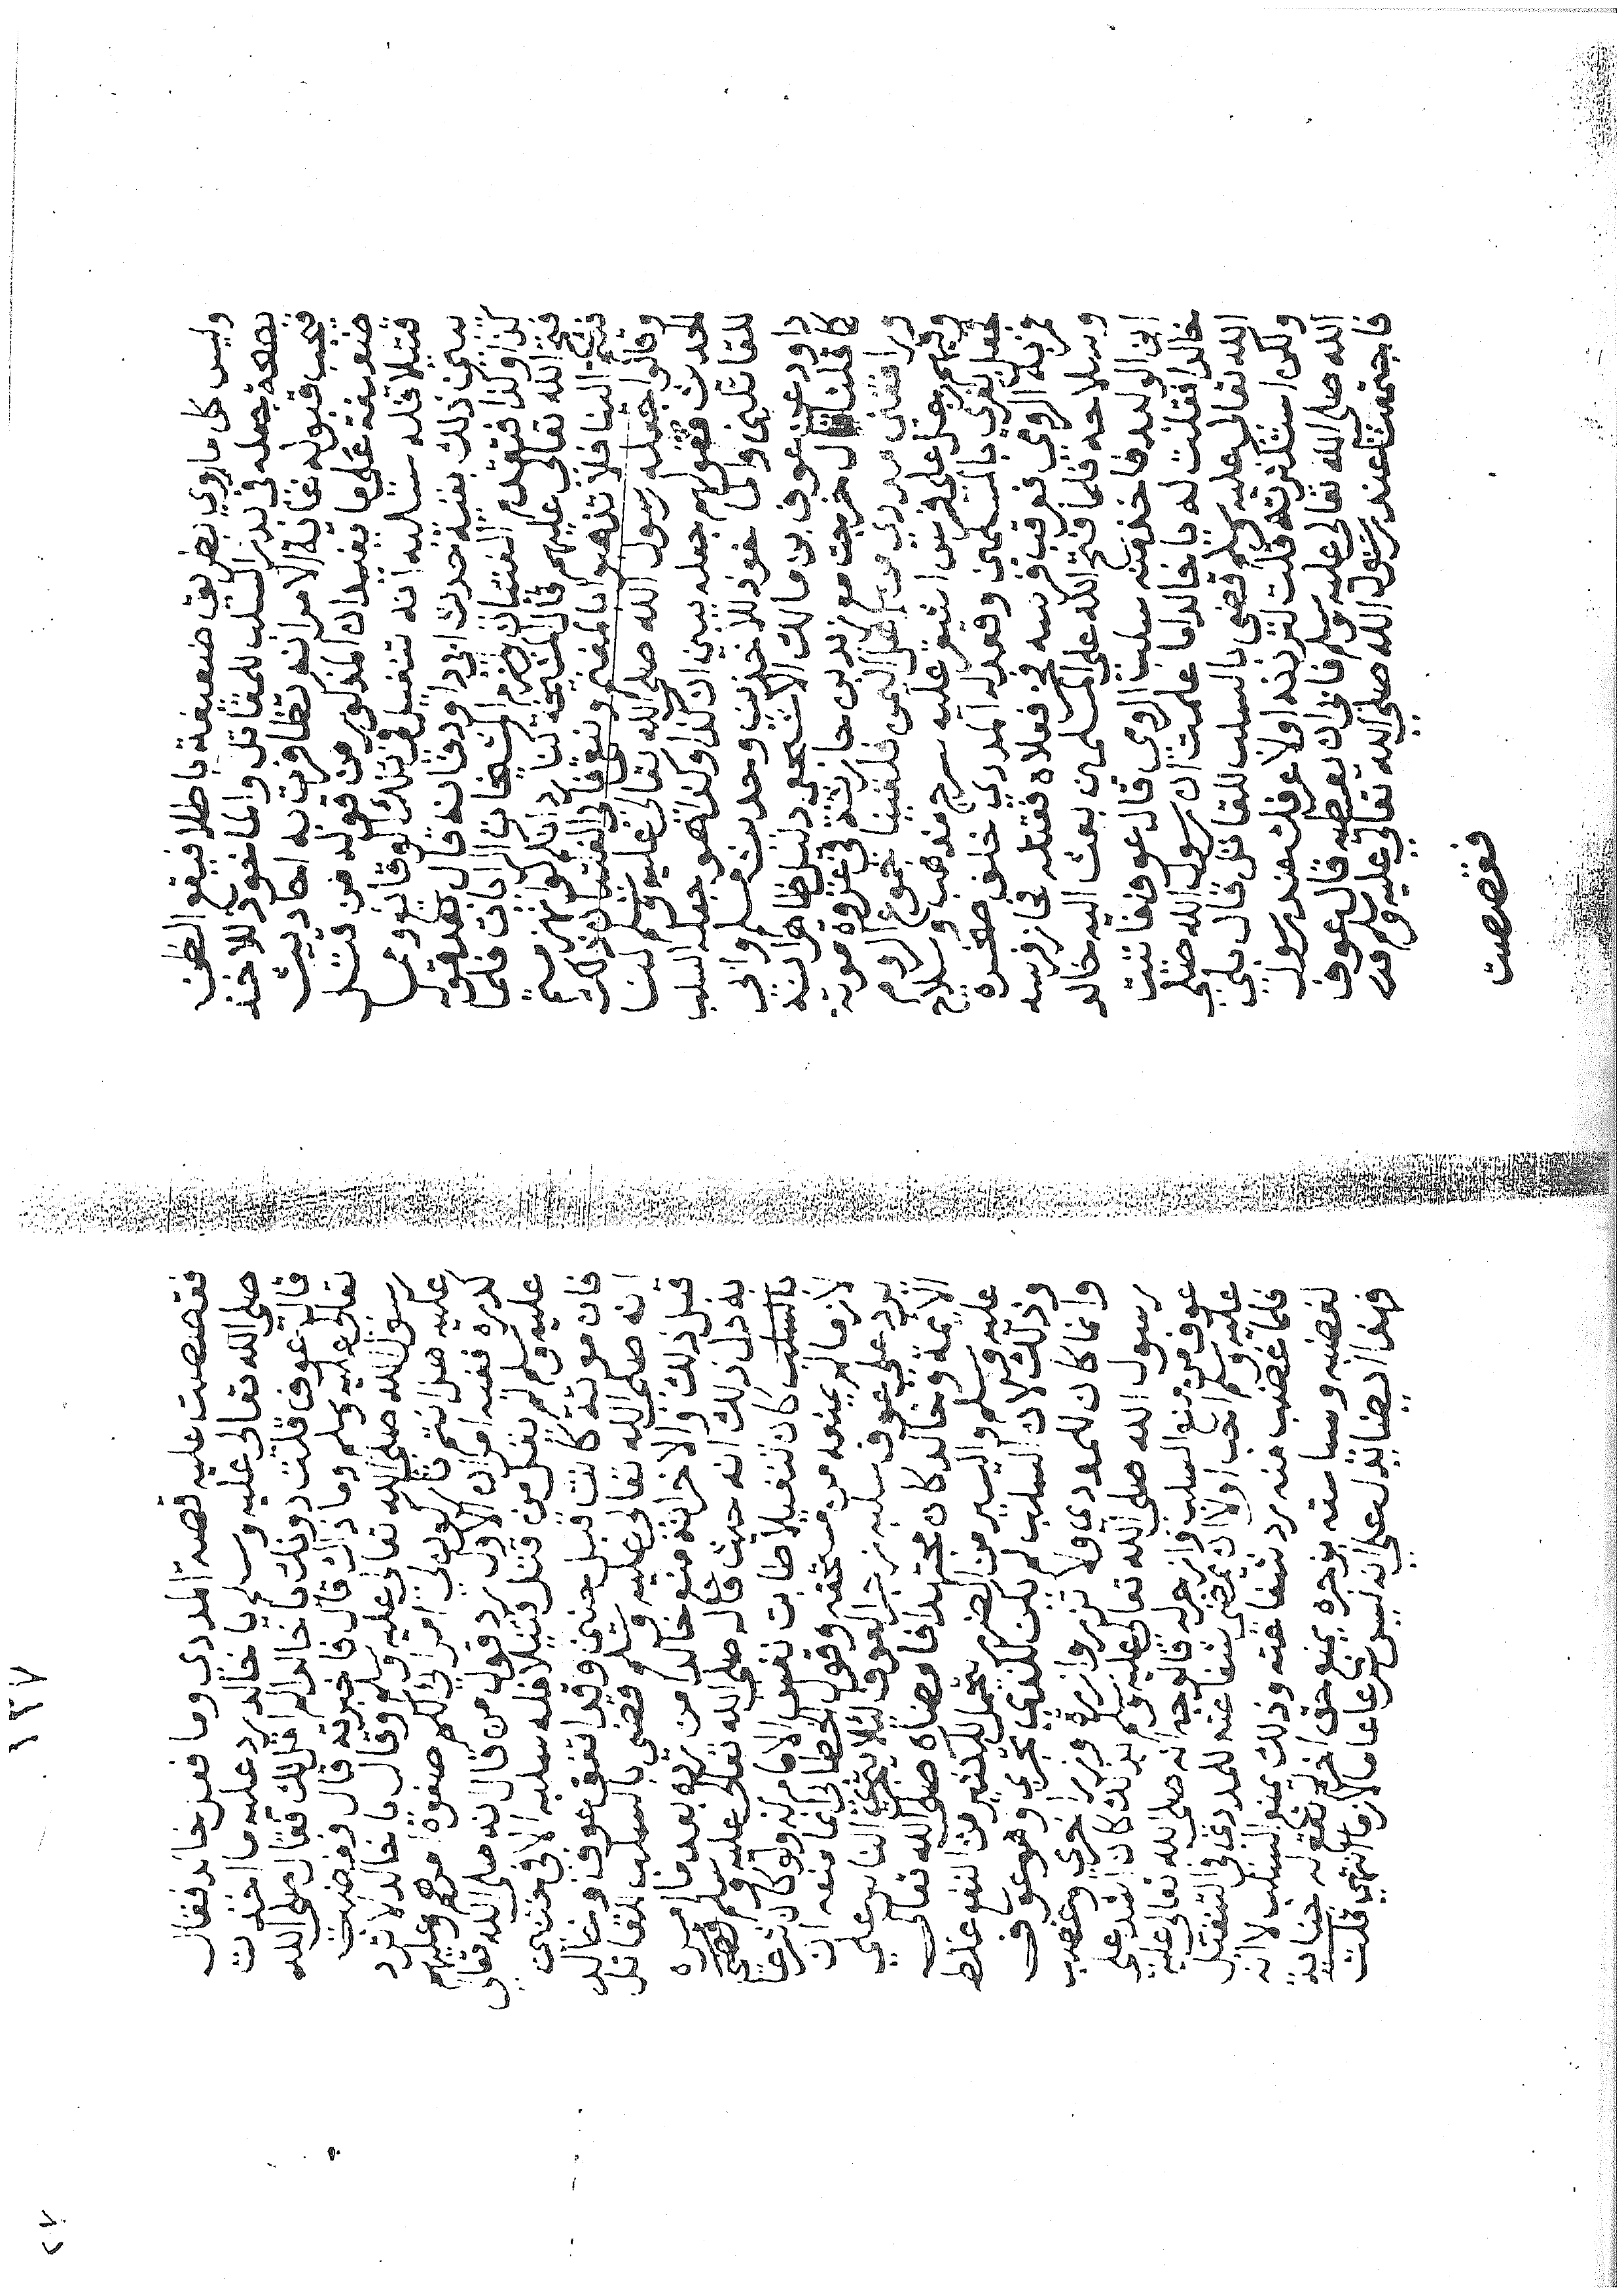 وليس كل ماروي بطريق ضعيفة باطلا فيقع الظن
بصحة جعله في بدر السلب للمقاتل والماخوذ للاخذ
فيجب قبوله غاية الامر انه تظافرت به احاديث
ضعيفة على ما يفيد ان المذكور من قوله من قتل
قتيلا فله سلبه انه تنفيل في تلك الوقايع ومما
يبين ذلك بقية حديث ابي داود فانه قال بعد قوله
كذا وكذا فتقدم الفتيان ولزم المشيخة الرايات فلما
فتح الله تعالى عليهم قال المشيخة كنا ردا لكم لو انهزمتم
فئتم الينا فلا تذهبوا بالمغنم ونبقى فابى الفتيان ذلك
وقالوا جعله رسول الله صلى الله تعالى عليه وسلم لنا
الحديث فقولهم جعله يبين ان كذا وكذا هو جعله السلب
للقاتلين والماخوذ للاخذين وحديث مسلم وابي
داود عن عوف بن مالك الاشجعي دليل ظاهر انه
كما قلنا قال خرجت مع زيد بن حارثة في غزوة موتة
ورافقني مددي من اهل اليمن فلقينا جموع الروم
وفيهم رجل على فرس اشقر عليه سرج مذهب وسلاح
فجعل يفري بالمسلمين وقعد له المددي خلف صخرة
فمر به الرومي فعرقب فرسه فخر فعلاه فقتله فحاز فرسه
وسلاحه فلما فتح الله على المسلمين بعث اليه خالد
ابن الوليد فاخذ منه سلب الرومي قال عوف فاتيت
خالدا فقلت له يا خالد اما علمت ان رسول الله صلى
الله تعالى عليه وسلم قضى بالسلب للقاتل قال بلى
ولكن استكثرته قلت لتردنه اولا عرفنك عند رسول
الله صلى الله تعالى عليه وسلم فابى ان يعطيه قال عوف
فاجتمعنا عند رسول الله صلى الله تعالى عليه وسلم
فقصصت
١٣٧
فقصصت عليه قصة المددي وما فعل خالد فقال
صلى الله تعالى عليه وسلم يا خالد رد عليه ما اخذت
قال عوف فقلت دونك يا خالد الم اقل لك فقال صلى الله
تعالى عليه وسلم وما ذاك قال فاخبرته قال فغضب
رسول الله صلى الله تعالى عليه وسلم وقال يا خالد لا ترد
عليه هل انتم تاركون لي امرائي لكم صفوة امرهم وعليهم
كدره ففيه امران الاول رد قول من قال انه صلى الله تعالى
عليه وسلم لم يقل من قتل قتيلا فله سلبه الا في حنين
فان موتة كانت قبل حنين وقد اتفق عوف وخالد
انه صلى الله تعالى عليه وسلم قضى بالسلب للقاتل
قبل ذلك والاخر انه منع خالدا من رده بعد ما امره
به دل ذلك انه حيث قاله صلى الله تعالى عليه وسلم
بالسلب كان تنفيلا طابت نفس الامام به ولو كان شرعا
لازما لم يمنعه من مستحقه وقول الخطابي انما منعه ان
يرد على عوف سلبه زجرا لعوف لئلا يتجرا الناس على
الايمة وخالد كان مجتهدا فامضاه صلى الله تعالى
عليه وسلم واليسير من الضرر يتحمل للكثير من النفع غلط
وذلك لان السلب لم يكن للذي تجرى وهو عوف
وانما كان للمددي ولا تزر وازرة وزر اخرى وغضب
رسول الله صلى الله تعالى عليه وسلم لذلك كان اشد على
عوف من منع السلب وازجر له فالوجه انه صلى الله تعالى عليه
عليه وسلم احب اولا ان يمضي شفاعته للمددي في التنفيل
فلما غضب منه رد شفاعته وذلك بمنع السلب لا انه
لغضبه وسياسته بزجره يمنع حق اخر لم تقع له جناية
فهذا ايضا يدل على انه ليس شرعا عاما لازما انتهى قلت